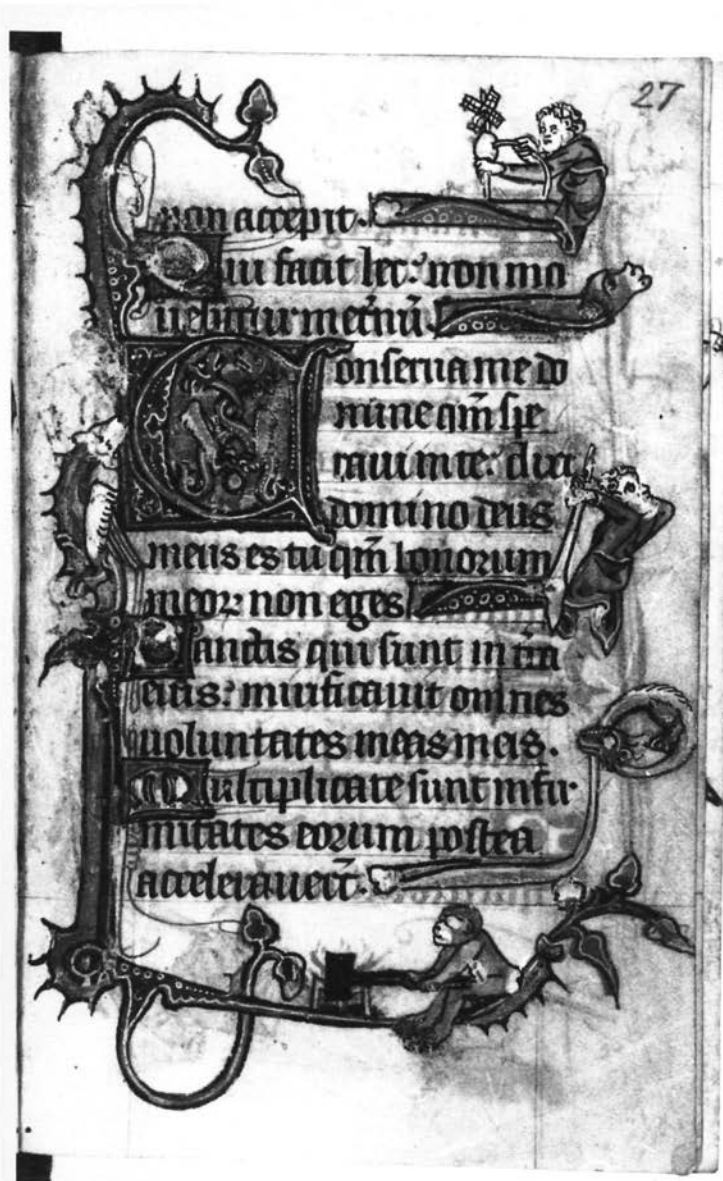 27
non accepit.
Qui facit hec: non mo
uebitur in et̃nũ.
Conserua me do
mine qm̃ spe
raui in te: dixi
domino deus
meus es tu qm̃ bonorum
meoꝝ non eges
Sanctis qui sunt in t̃ra
eius: mirificauit omnes
uoluntates meas in eis.
Multiplicate sunt infir
mitates eorum postea
accelerauer̃t.